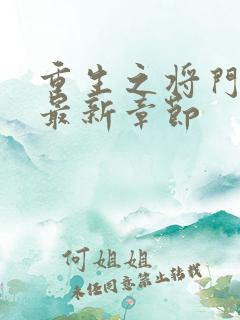 重生之将門
最新章節
何姐姐
未经同意禁止转载